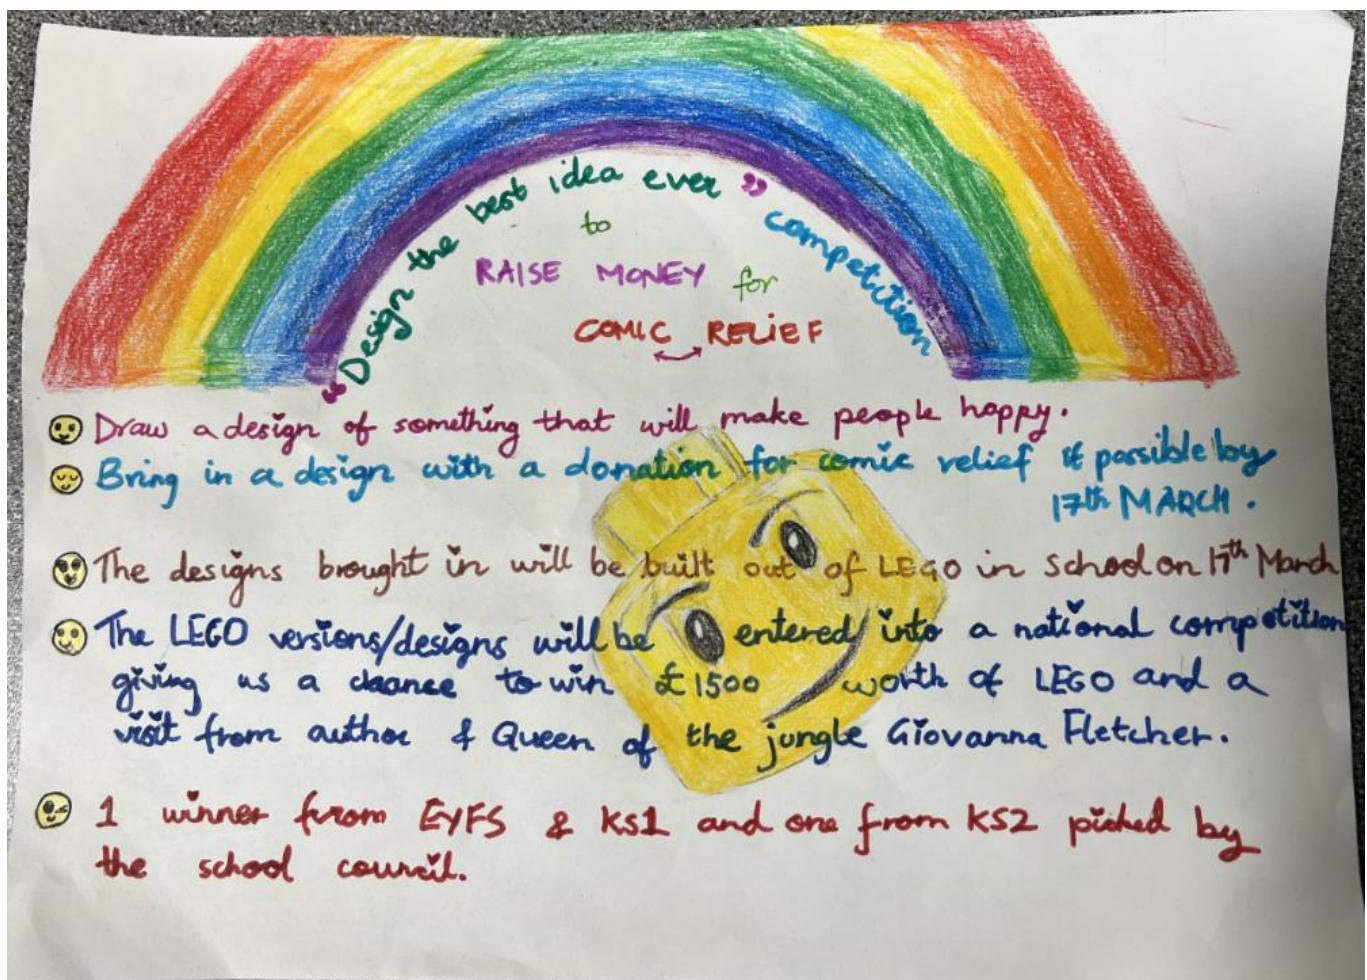 "Design the best idea ever" competition
to
RAISE MONEY for
COMIC RELIEF
Draw a design of something that will make people happy.
Bring in a design with a donation for comic relief if possible by
17th MARCH.
The designs brought in will be built out of LEGO in school on 17th March
The LEGO versions/designs will be entered into a national competition
giving us a chance to win £1500 worth of LEGO and a
visit from author & Queen of the jungle Giovanna Fletcher.
1 winner from EYFS & KS1 and one from KS2 picked by
the school council.